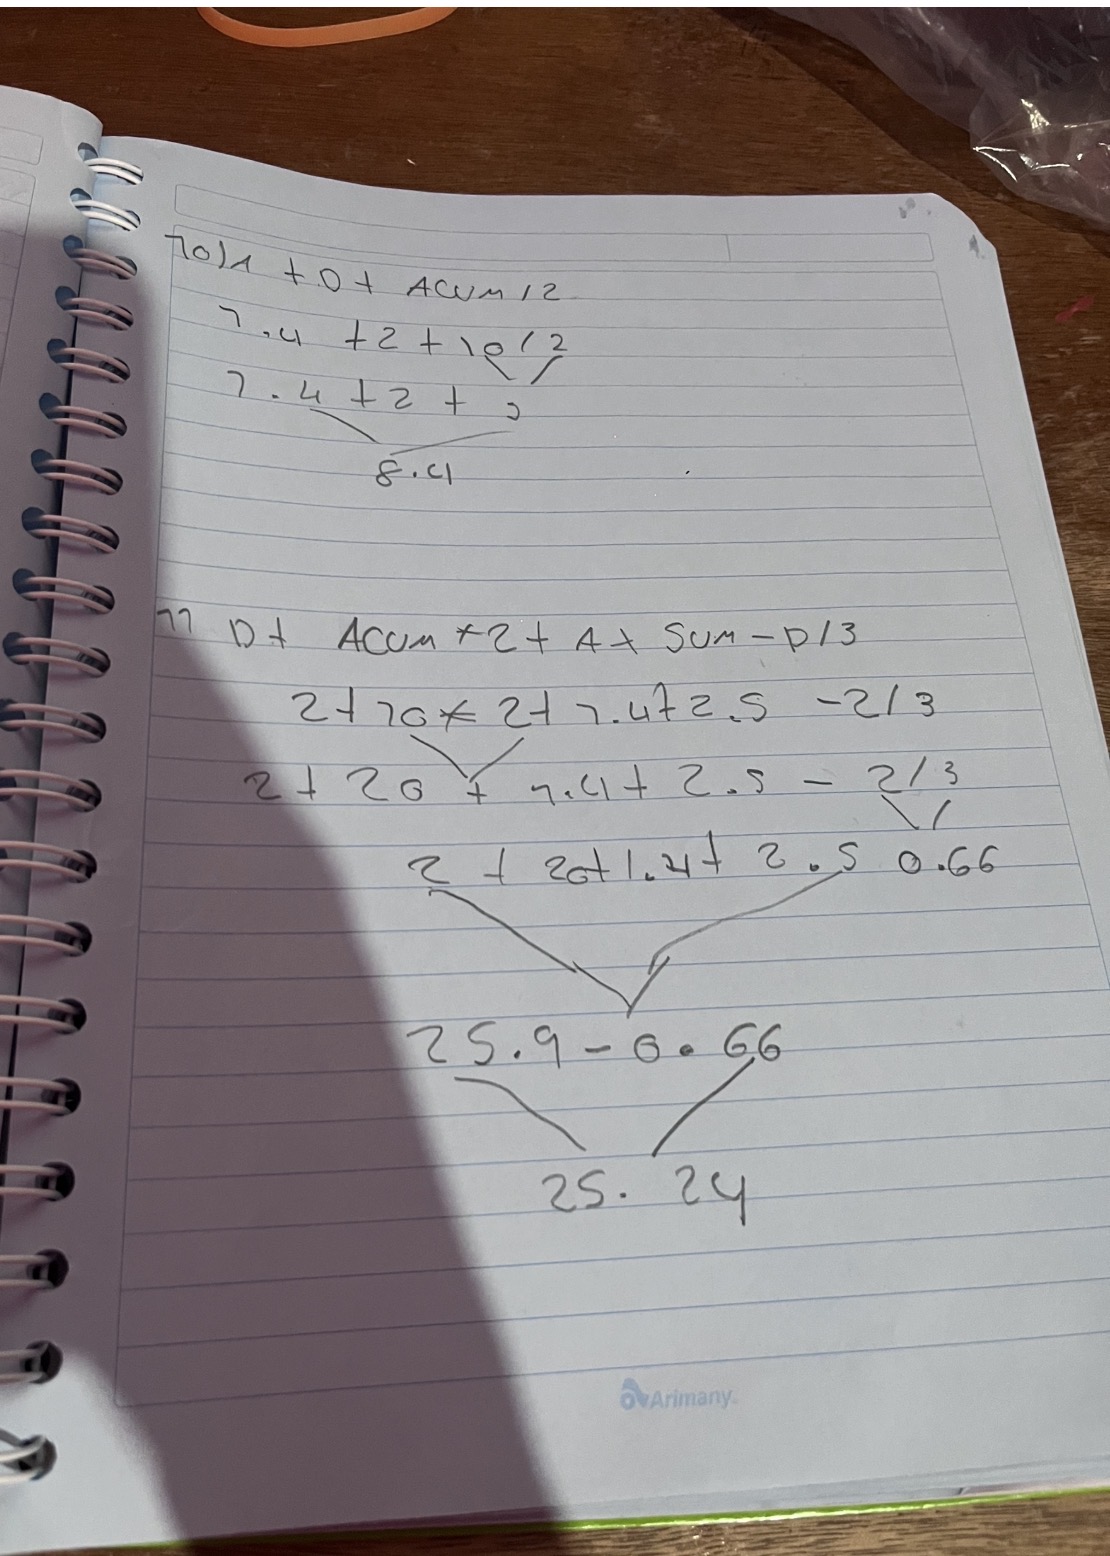 10) A + D + ACUM / 2
1.4 + 2 + 10 / 2
1.4 + 2 + 5
8.4
11 D + ACUM * 2 + A + SUM - D / 3
2 + 10 * 2 + 1.4 + 2.5 - 2 / 3
2 + 20 + 1.4 + 2.5 - 2 / 3
2 + 20 + 1.4 + 2.5 0.66
25.9 - 0.66
25.24
Arimany.